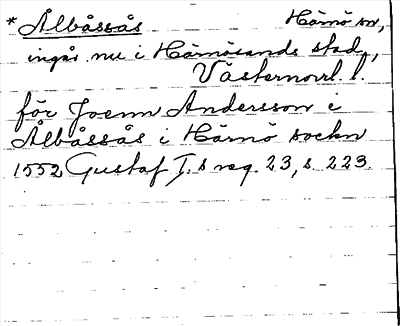 * Ålbåssås Härnö sn,
ingår nu i Härnösands stad,
Västernorrl. l.
för Joenn Andersson i
Ålbåssås i Härnö sockn
1552 Gustaf I.s reg. 23, s. 223.